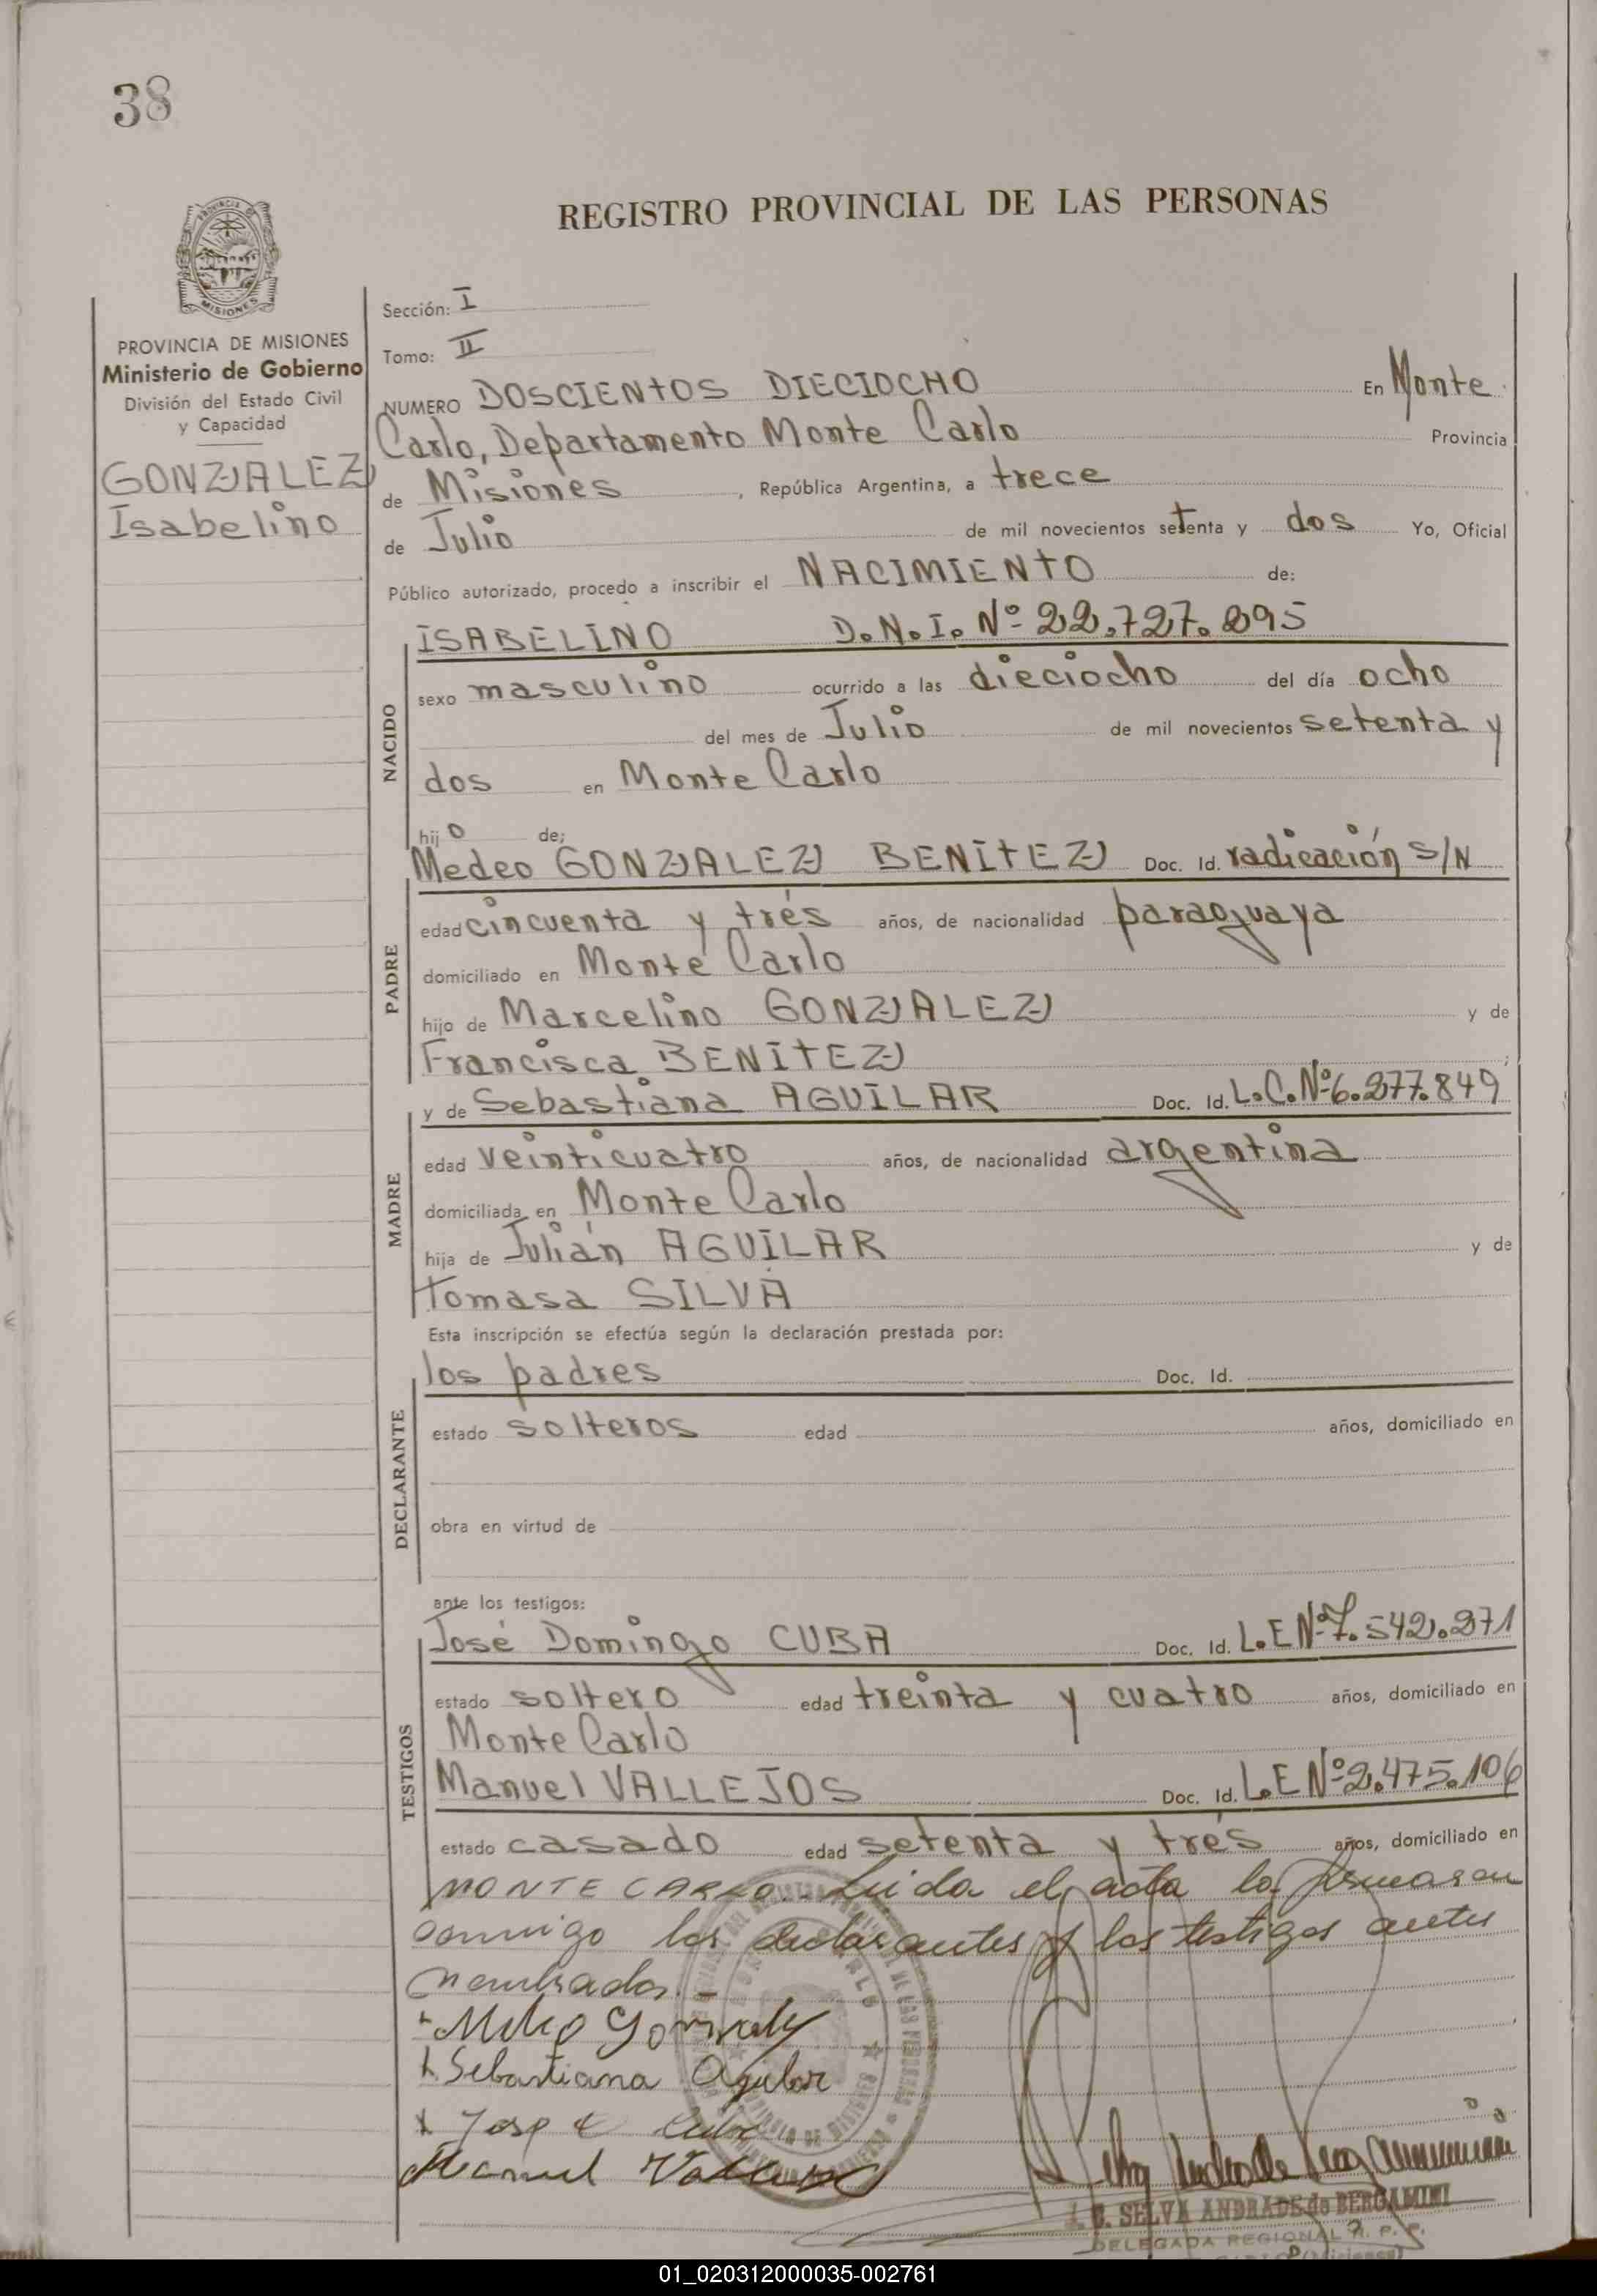 38
REGISTRO PROVINCIAL DE LAS PERSONAS
PROVINCIA DE
MISIONES
PROVINCIA DE MISIONES
Ministerio de Gobierno
División del Estado Civil
y Capacidad
GONZALEZ
Isabelino
Sección: I
Tomo: II
NUMERO DOSCIENTOS DIECIOCHO En Monte
Carlo, Departamento Monte Carlo Provincia
de Misiones, República Argentina, a trece
de Julio de mil novecientos setenta y dos Yo, Oficial
Público autorizado, procedo a inscribir el NACIMIENTO de:
NACIDO
ISABELINO D.N.I. Nº 22.727.295
sexo masculino ocurrido a las dieciocho del día ocho
del mes de Julio de mil novecientos setenta y
dos en Monte Carlo
hijo de;
PADRE
Medeo GONZALEZ BENITEZ Doc. Id. radicación S/N
edad cincuenta y trés años, de nacionalidad paraguaya
domiciliado en Monte Carlo
hijo de Marcelino GONZALEZ y de
Francisca BENITEZ;
MADRE
y de Sebastiana AGUILAR Doc. Id. L.C.Nº6.277.849
edad veinticuatro años, de nacionalidad argentina
domiciliada en Monte Carlo
hija de Julián AGUILAR y de
Tomasa SILVA
Esta inscripción se efectúa según la declaración prestada por:
DECLARANTE
los padres Doc. Id.
estado solteros edad años, domiciliado en
obra en virtud de
ante los testigos:
TESTIGOS
José Domingo CUBA Doc. Id. L.E Nº7.542.271
estado soltero edad treinta y cuatro años, domiciliado en
Monte Carlo
Manuel VALLEJOS Doc. Id. L.E Nº2.475.106
estado casado edad setenta y trés años, domiciliado en
MONTE CARLO.. Leida el acta la firmaron
conmigo los declarantes y los testigos antes
nombrados.-
Sebastiana Agilar
Manuel
SELVA ANDRADE de BERGAMINI
DELEGADA REGIONAL R. P. P.
01_020312000035-002761